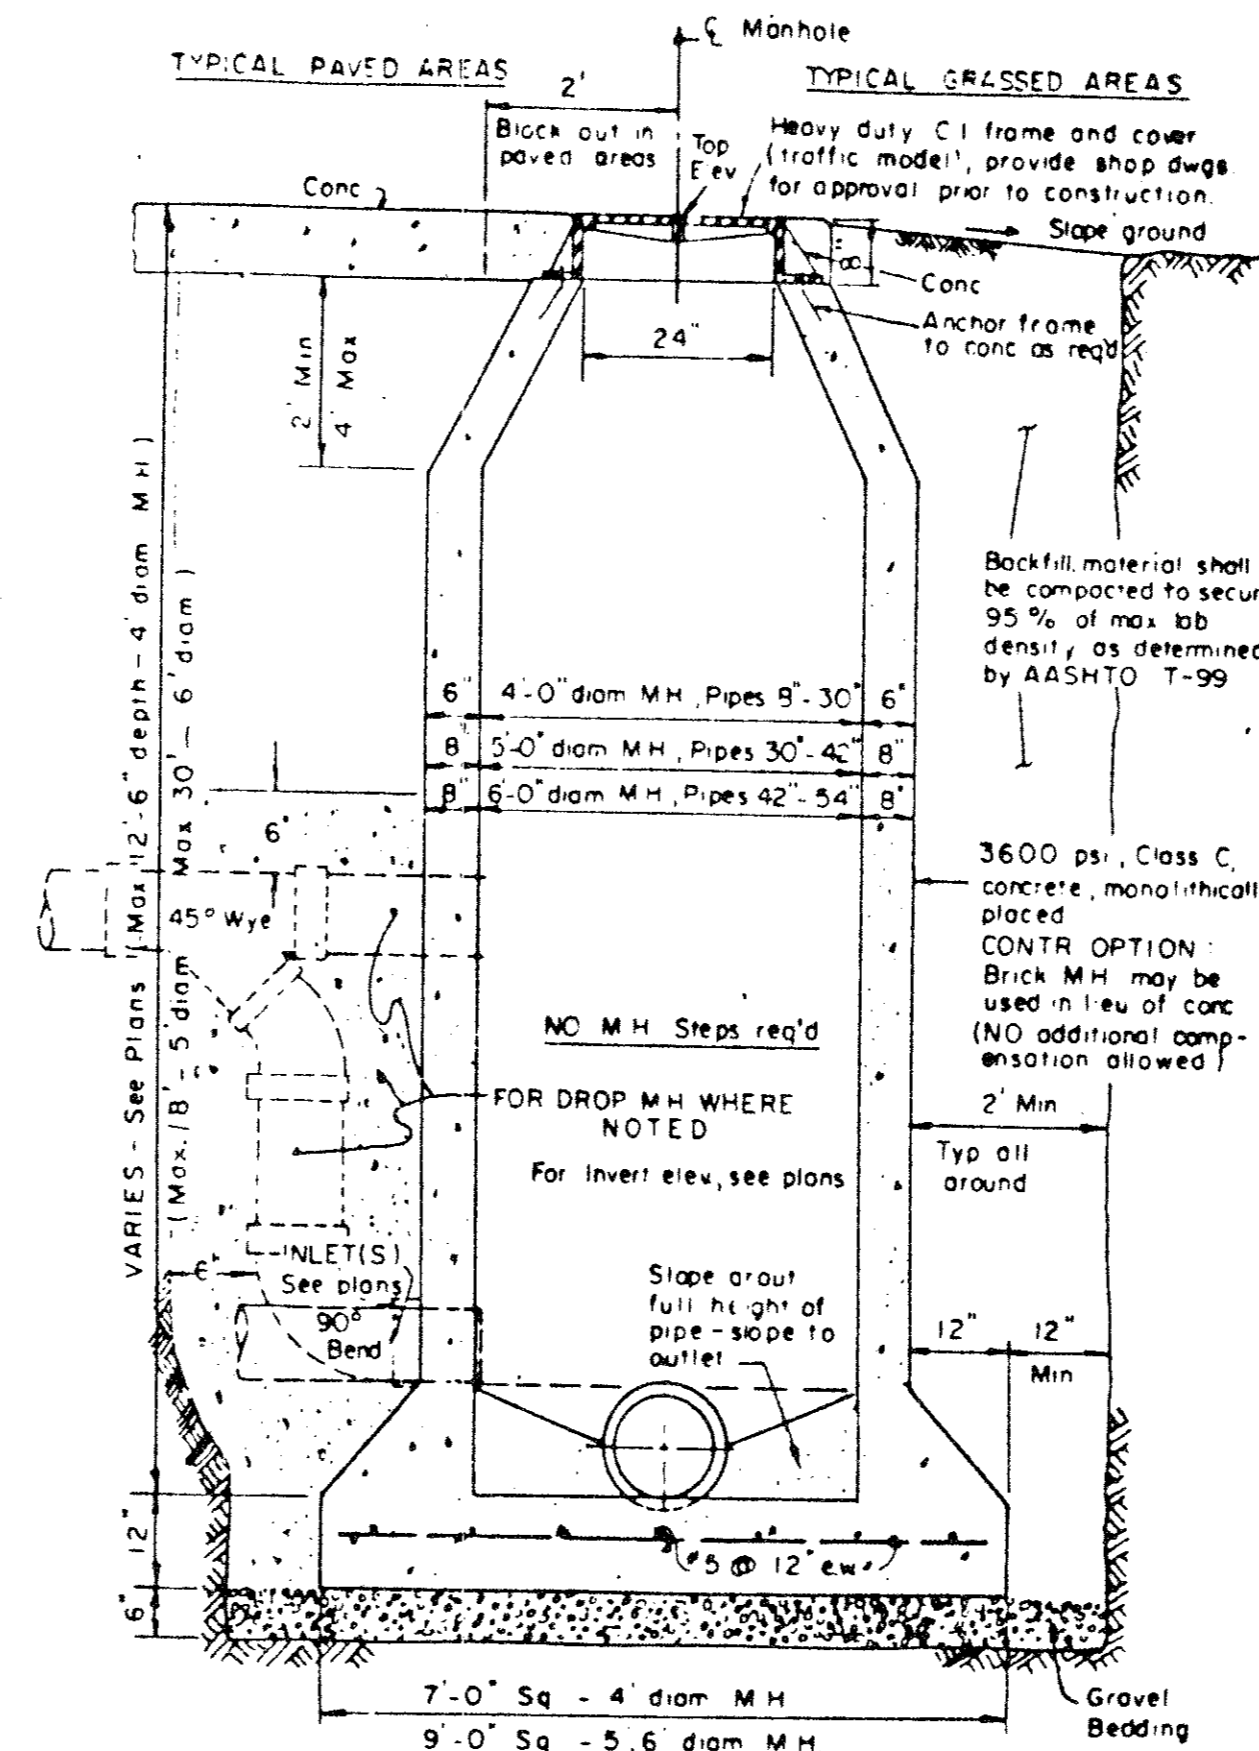 ℄ Manhole
TYPICAL PAVED AREAS
TYPICAL GRASSED AREAS
2'
Block out in
paved areas
Top
Elev
Heavy duty C I frame and cover
(traffic model), provide shop dwgs.
for approval prior to construction.
Conc
Slope ground
8"
Conc
Anchor frame
to conc as req'd
24"
2' Min
4' Max
VARIES - See Plans (Max 12'-6" depth - 4' diam M H)
(Max. 18' - 5' diam Max 30' - 6' diam)
Backfill material shall
be compacted to secur
95 % of max lab
density as determined
by AASHTO T-99
6" 4'-0" diam M H, Pipes 8"- 30" 6"
8" 5'-0" diam M H, Pipes 30"- 42" 8"
8" 6'-0" diam M H, Pipes 42"- 54" 8"
6"
45° Wye
3600 psi, Class C,
concrete, monolithicall
placed
CONTR OPTION :
Brick M H may be
used in lieu of conc
(NO additional comp-
ensation allowed)
NO M H Steps req'd
FOR DROP M H WHERE
NOTED
For Invert elev, see plans
2' Min
Typ all
around
6"
INLET(S)
See plans
90°
Bend
Slope grout
full height of
pipe - slope to
outlet
12" 12"
Min
12"
#5 @ 12" e.w.
6"
7'-0" Sq - 4' diam M H
9'-0" Sq - 5', 6' diam M H
Gravel
Bedding